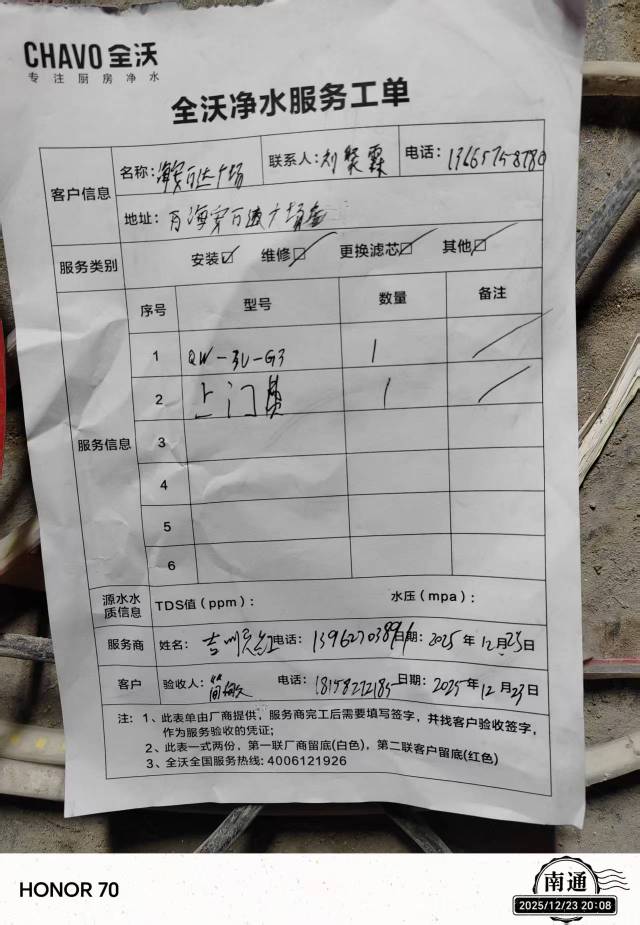 CHAVO 全沃
专注厨房净水
全沃净水服务工单
客户信息 名称: 海安万达广场 联系人: 刘 霖 电话: 13665758780
地址: 海安万达广场
服务类别 安装☑ 维修☐ 更换滤芯☐ 其他☐
服务信息 序号 型号 数量 备注
1 QW-3U-G3 1 /
2 上门费 1 /
3
4
5
6
源水水质信息 TDS值(ppm): 水压(mpa):
服务商 姓名: 电话: 日期: 2025年12月23日
客户 验收人: 电话: 18158272185 日期: 2025年12月23日
注: 1、此表单由厂商提供,服务商完工后需要填写签字,并找客户验收签字,
作为服务验收的凭证;
2、此表一式两份,第一联厂商留底(白色),第二联客户留底(红色)
3、全沃全国服务热线: 4006121926
HONOR 70
南通
2025/12/23 20:08